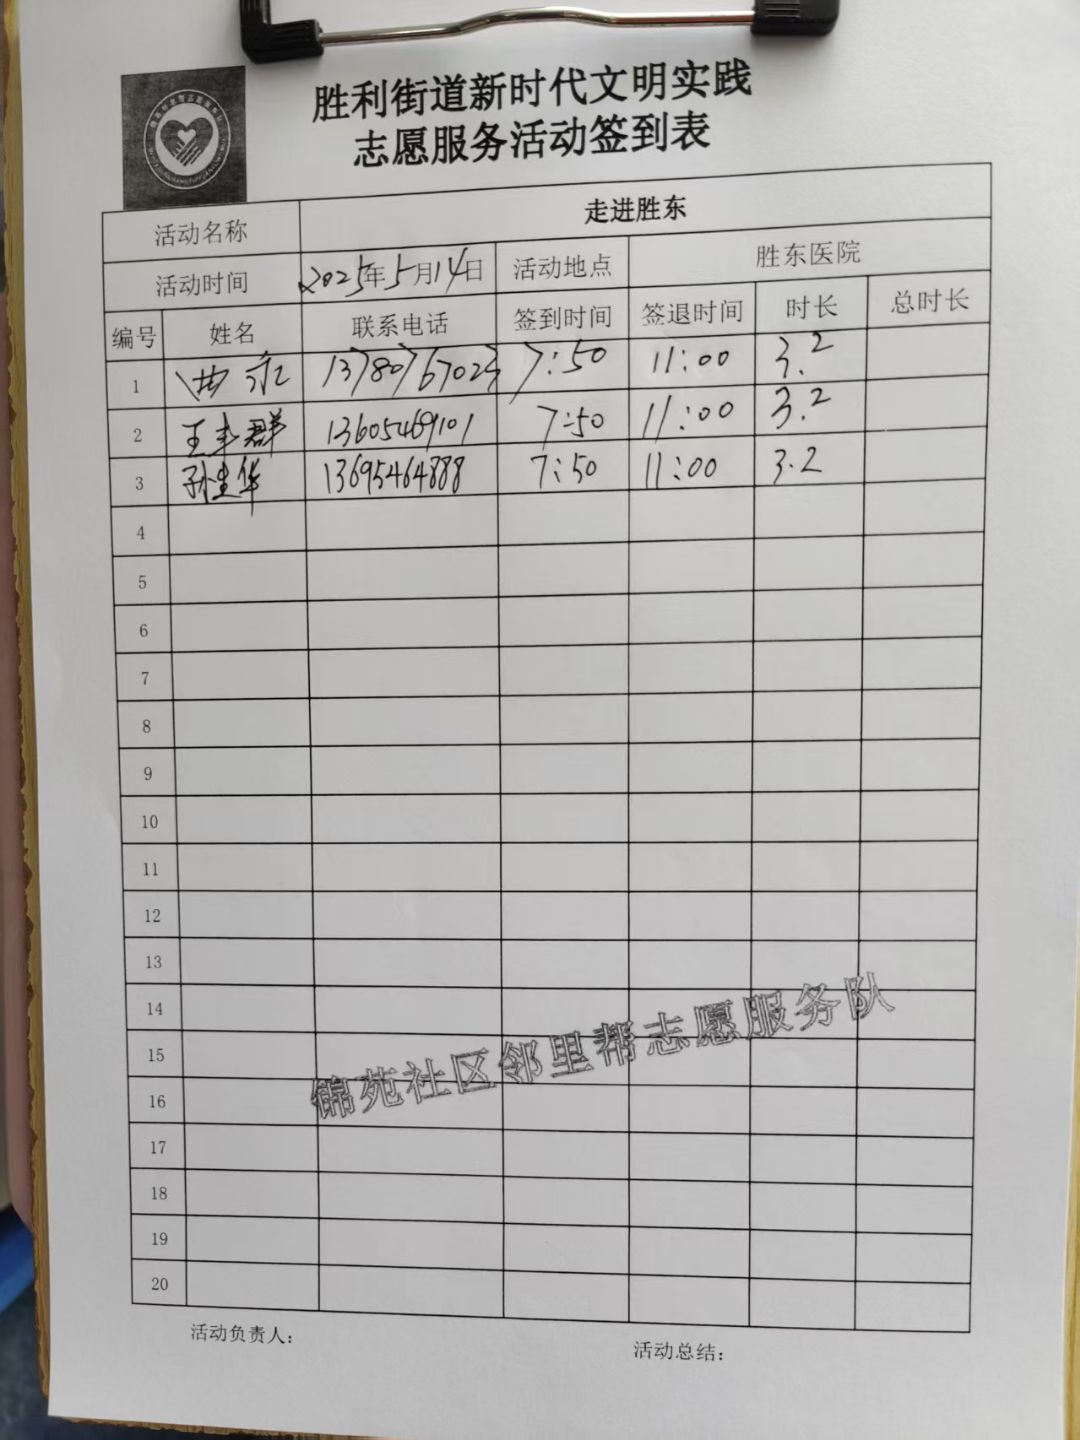 胜利街道新时代文明实践
志愿服务活动签到表
活动名称 走进胜东
活动时间 2025年5月14日 活动地点 胜东医院
编号 姓名 联系电话 签到时间 签退时间 时长 总时长
1 曲永 13780767023 7:50 11:00 3.2
2 王丰群 13605469101 7:50 11:00 3.2
3 孙建华 13695464888 7:50 11:00 3.2
4
5
6
7
8
9
10
11
12
13
14
15
16
17
18
19
20
锦苑社区邻里帮志愿服务队
活动负责人: 活动总结: